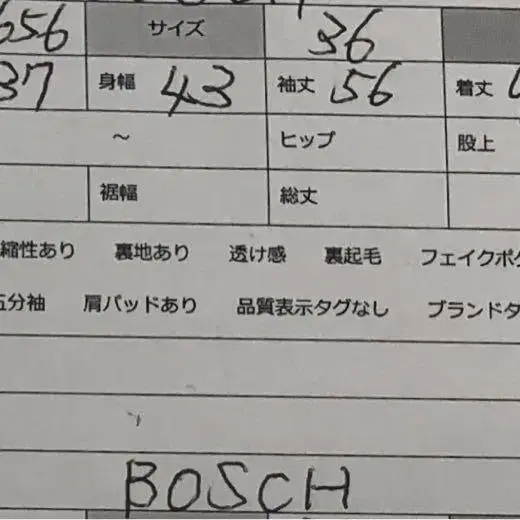 656 サイズ 36
37 身幅 43 袖丈 56 着丈
～ ヒップ 股上
裾幅 総丈
縮性あり 裏地あり 透け感 裏起毛 フェイクポケ
五分袖 肩パッドあり 品質表示タグなし ブランドタ
BOSCH